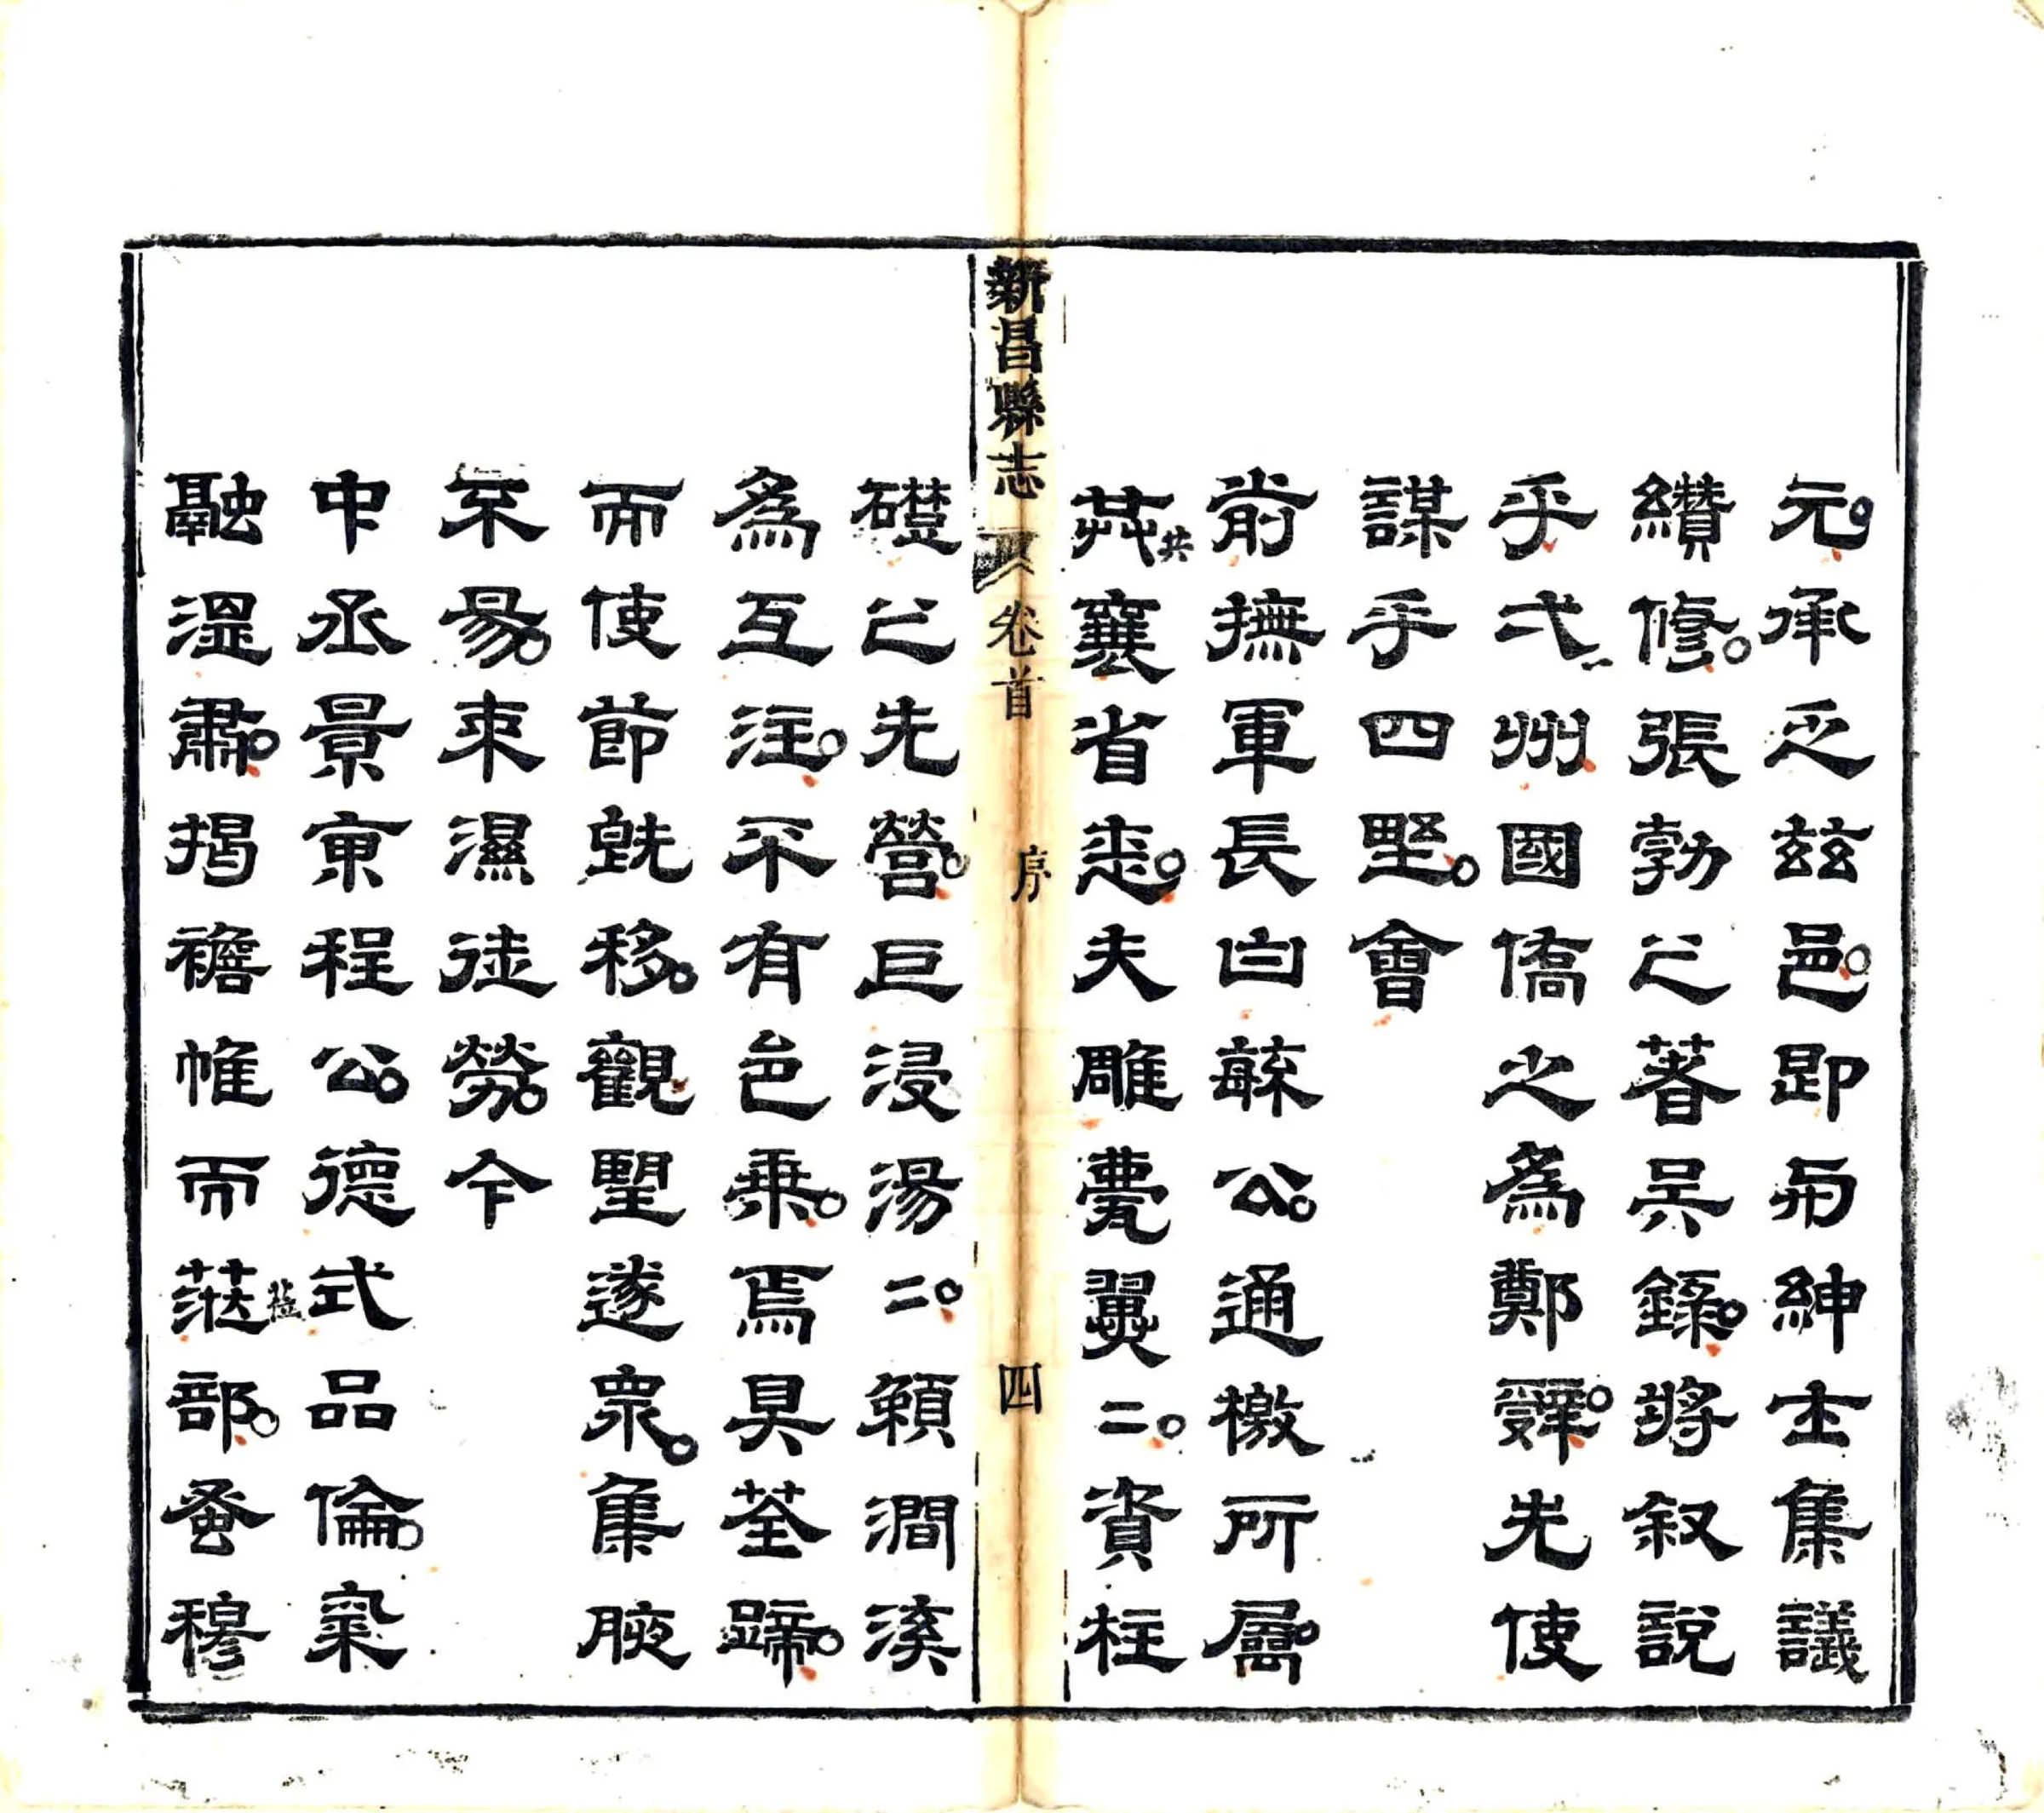 元承乏茲邑卽与紳士集議
纘修張勃之著吳錄將叙說
乎弌州國僑之為鄭辭先使
謀乎四野會
前撫軍長白蘇公通檄所屬
共襄省志夫雕甍翼二資柱
共
新昌縣志 卷首 序 四
礎之先營巨浸湯二賴澗溪
為互注不有邑乘焉具荃蹄
而使節旣移觀望遂衆集腋
不易束濕徒勞今
中丞景東程公德式品倫氣
融溫肅揭襜帷而莅部蚤穆
莅